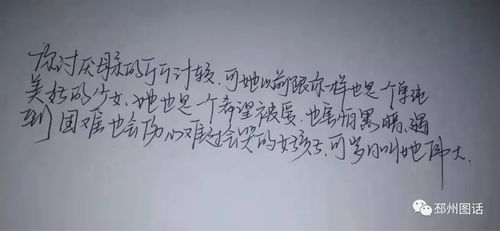 你讨厌母亲的斤斤计较,可她以前跟你一样也是个单纯
美好的少女,她也是个希望被爱,也害怕黑暗,遇
到困难也会伤心难过会哭的好孩子,可岁月叫她伟大.
邳州图话